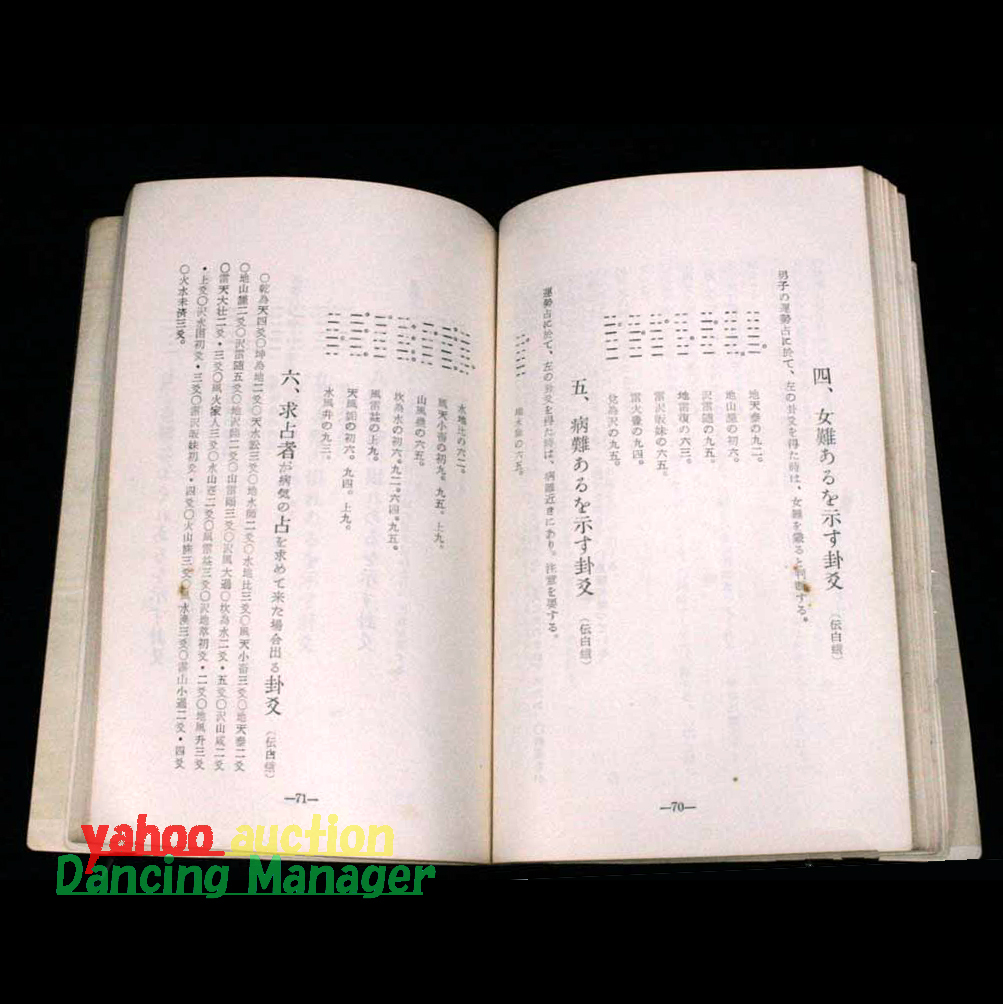 四、女難あるを示す卦爻 (伝白蛾)
男子の運勢占に於て、左の卦爻を得た時は、女難を蔵ると判断する。
地天泰の九二。
地山謙の初六。
沢雷随の九五。
地雷復の六三。
雷沢帰妹の六五。
雷火豊の九四。
兌為沢の九五。
五、病難あるを示す卦爻 (伝白蛾)
運勢占に於て、左の卦爻を得た時は、病難近きにあり。注意を要する。
の六五。
—70—
水地比の六二。
風天小畜の初九。九五。上九。
山風蠱の六五。
坎為水の初六。九二。六四。九五。
風雷益の上九。
天風姤の初六。九四。上九。
水風井の九三。
六、求占者が病気の占を求めて来た場合出る卦爻 (伝白蛾)
〇乾為天四爻〇坤為地二爻〇天水訟三爻〇地水師二爻〇水地比三爻〇風天小畜三爻〇地天泰二爻
〇地山謙二爻〇沢雷随五爻〇地沢臨二爻〇山雷頤三爻〇沢風大過〇坎為水二爻・五爻〇沢山咸二爻
〇雷天大壮二爻・三爻〇風火家人三爻〇水山蹇二爻〇風雷益三爻〇沢地萃初爻・二爻〇地風升三爻
・上爻〇沢水困初爻・三爻〇雷沢帰妹初爻・四爻〇火山旅三爻〇風水渙三爻〇雷山小過二爻・四爻
〇火水未済三爻。
—71—
yahoo auction
Dancing Manager